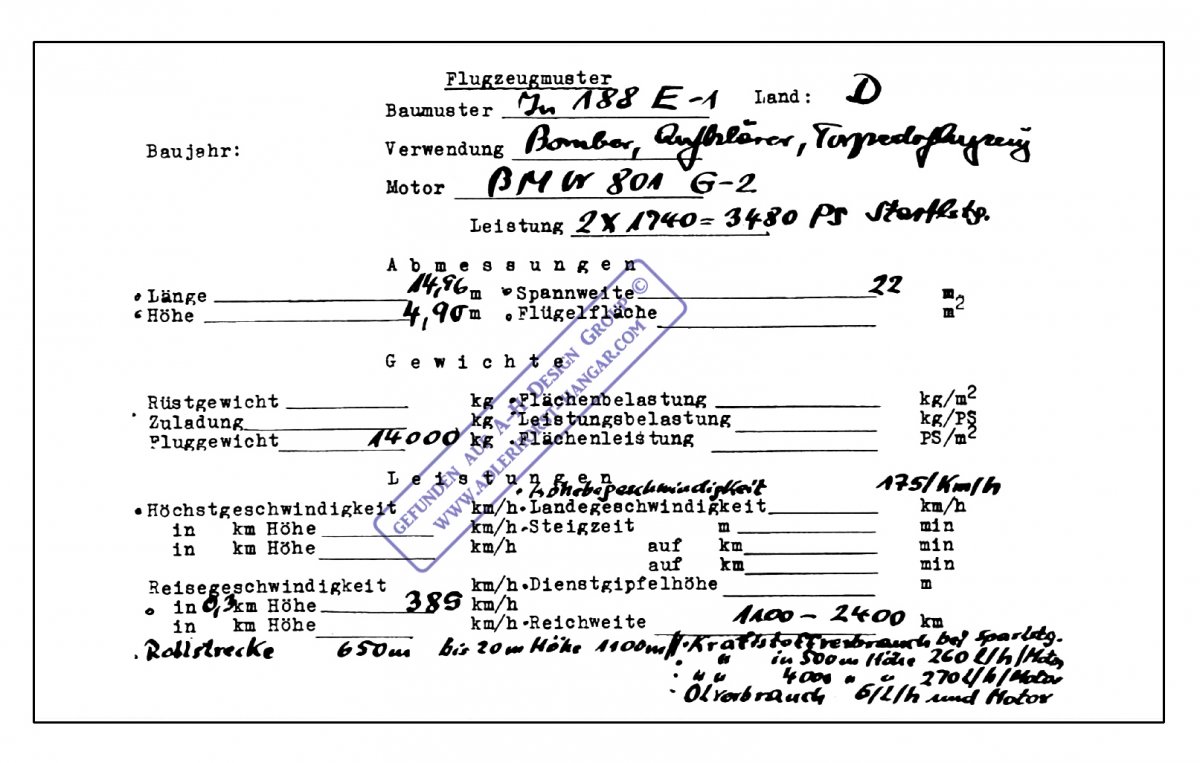 Flugzeugmuster
Baumuster Ju 188 E-1 Land: D
Baujahr: Verwendung Bomber, Aufklärer, Torpedoflugzeug
Motor BMW 801 G-2
Leistung 2 X 1740 = 3480 PS Startlstg.
Abmessungen
Länge 14,96 m Spannweite 22 m
Höhe 4,90 m Flügelfläche m²
Gewichte
Rüstgewicht kg Flächenbelastung kg/m²
Zuladung kg Leistungsbelastung kg/PS
Fluggewicht 14000 kg Flächenleistung PS/m²
Leistungen
Abhebegeschwindigkeit 175/Km/h
Höchstgeschwindigkeit km/h Landegeschwindigkeit km/h
in km Höhe km/h Steigzeit m min
in km Höhe km/h auf km min
auf km min
Reisegeschwindigkeit km/h Dienstgipfelhöhe m
in 0,3 km Höhe 385 km/h
in km Höhe km/h Reichweite 1100 - 2400 km
Rollstrecke 650m bis 20m Höhe 1100m // Kraftstoffverbrauch bei Sparlstg.
" in 500m Höhe 260 l/h/Motor
" " 4000 " " 270 l/h/Motor
Ölverbrauch 6/L/h und Motor
GEFUNDEN AUF A-H DESIGN GROUP ©
WWW.ADLERHORST-HANGAR.COM